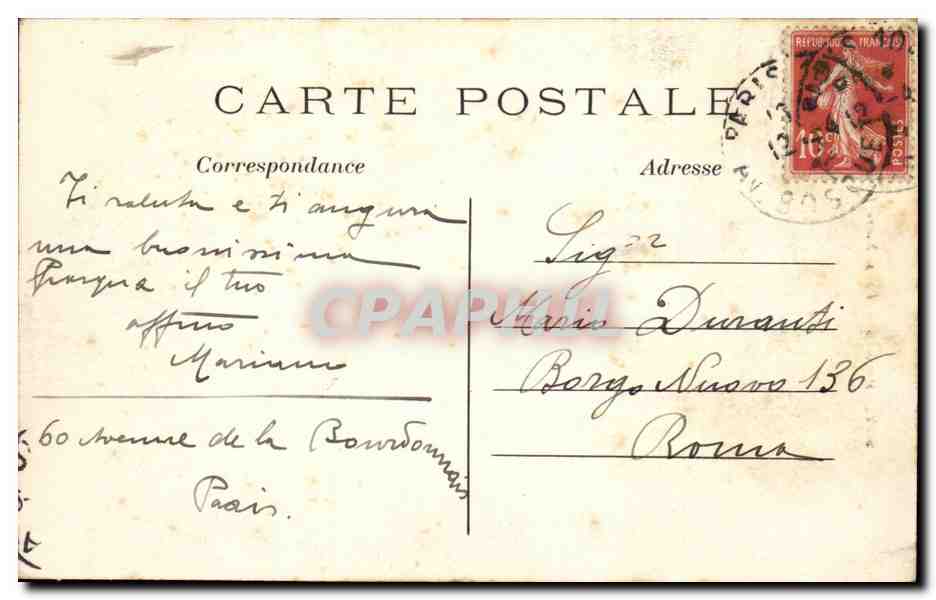 CARTE POSTALE
Correspondance
Adresse
REPUBLIQUE FRANÇAISE
10c
POSTES
PARIS
AV. BOSQUET
Ti saluta e ti augura
una buonissima
Pasqua il tuo
affmo
Mariano
60 Avenue de la Bourdonnais
Paris.
Sigr
Mario Duranti
Borgo Nuovo 136
Roma
CPAPHIL